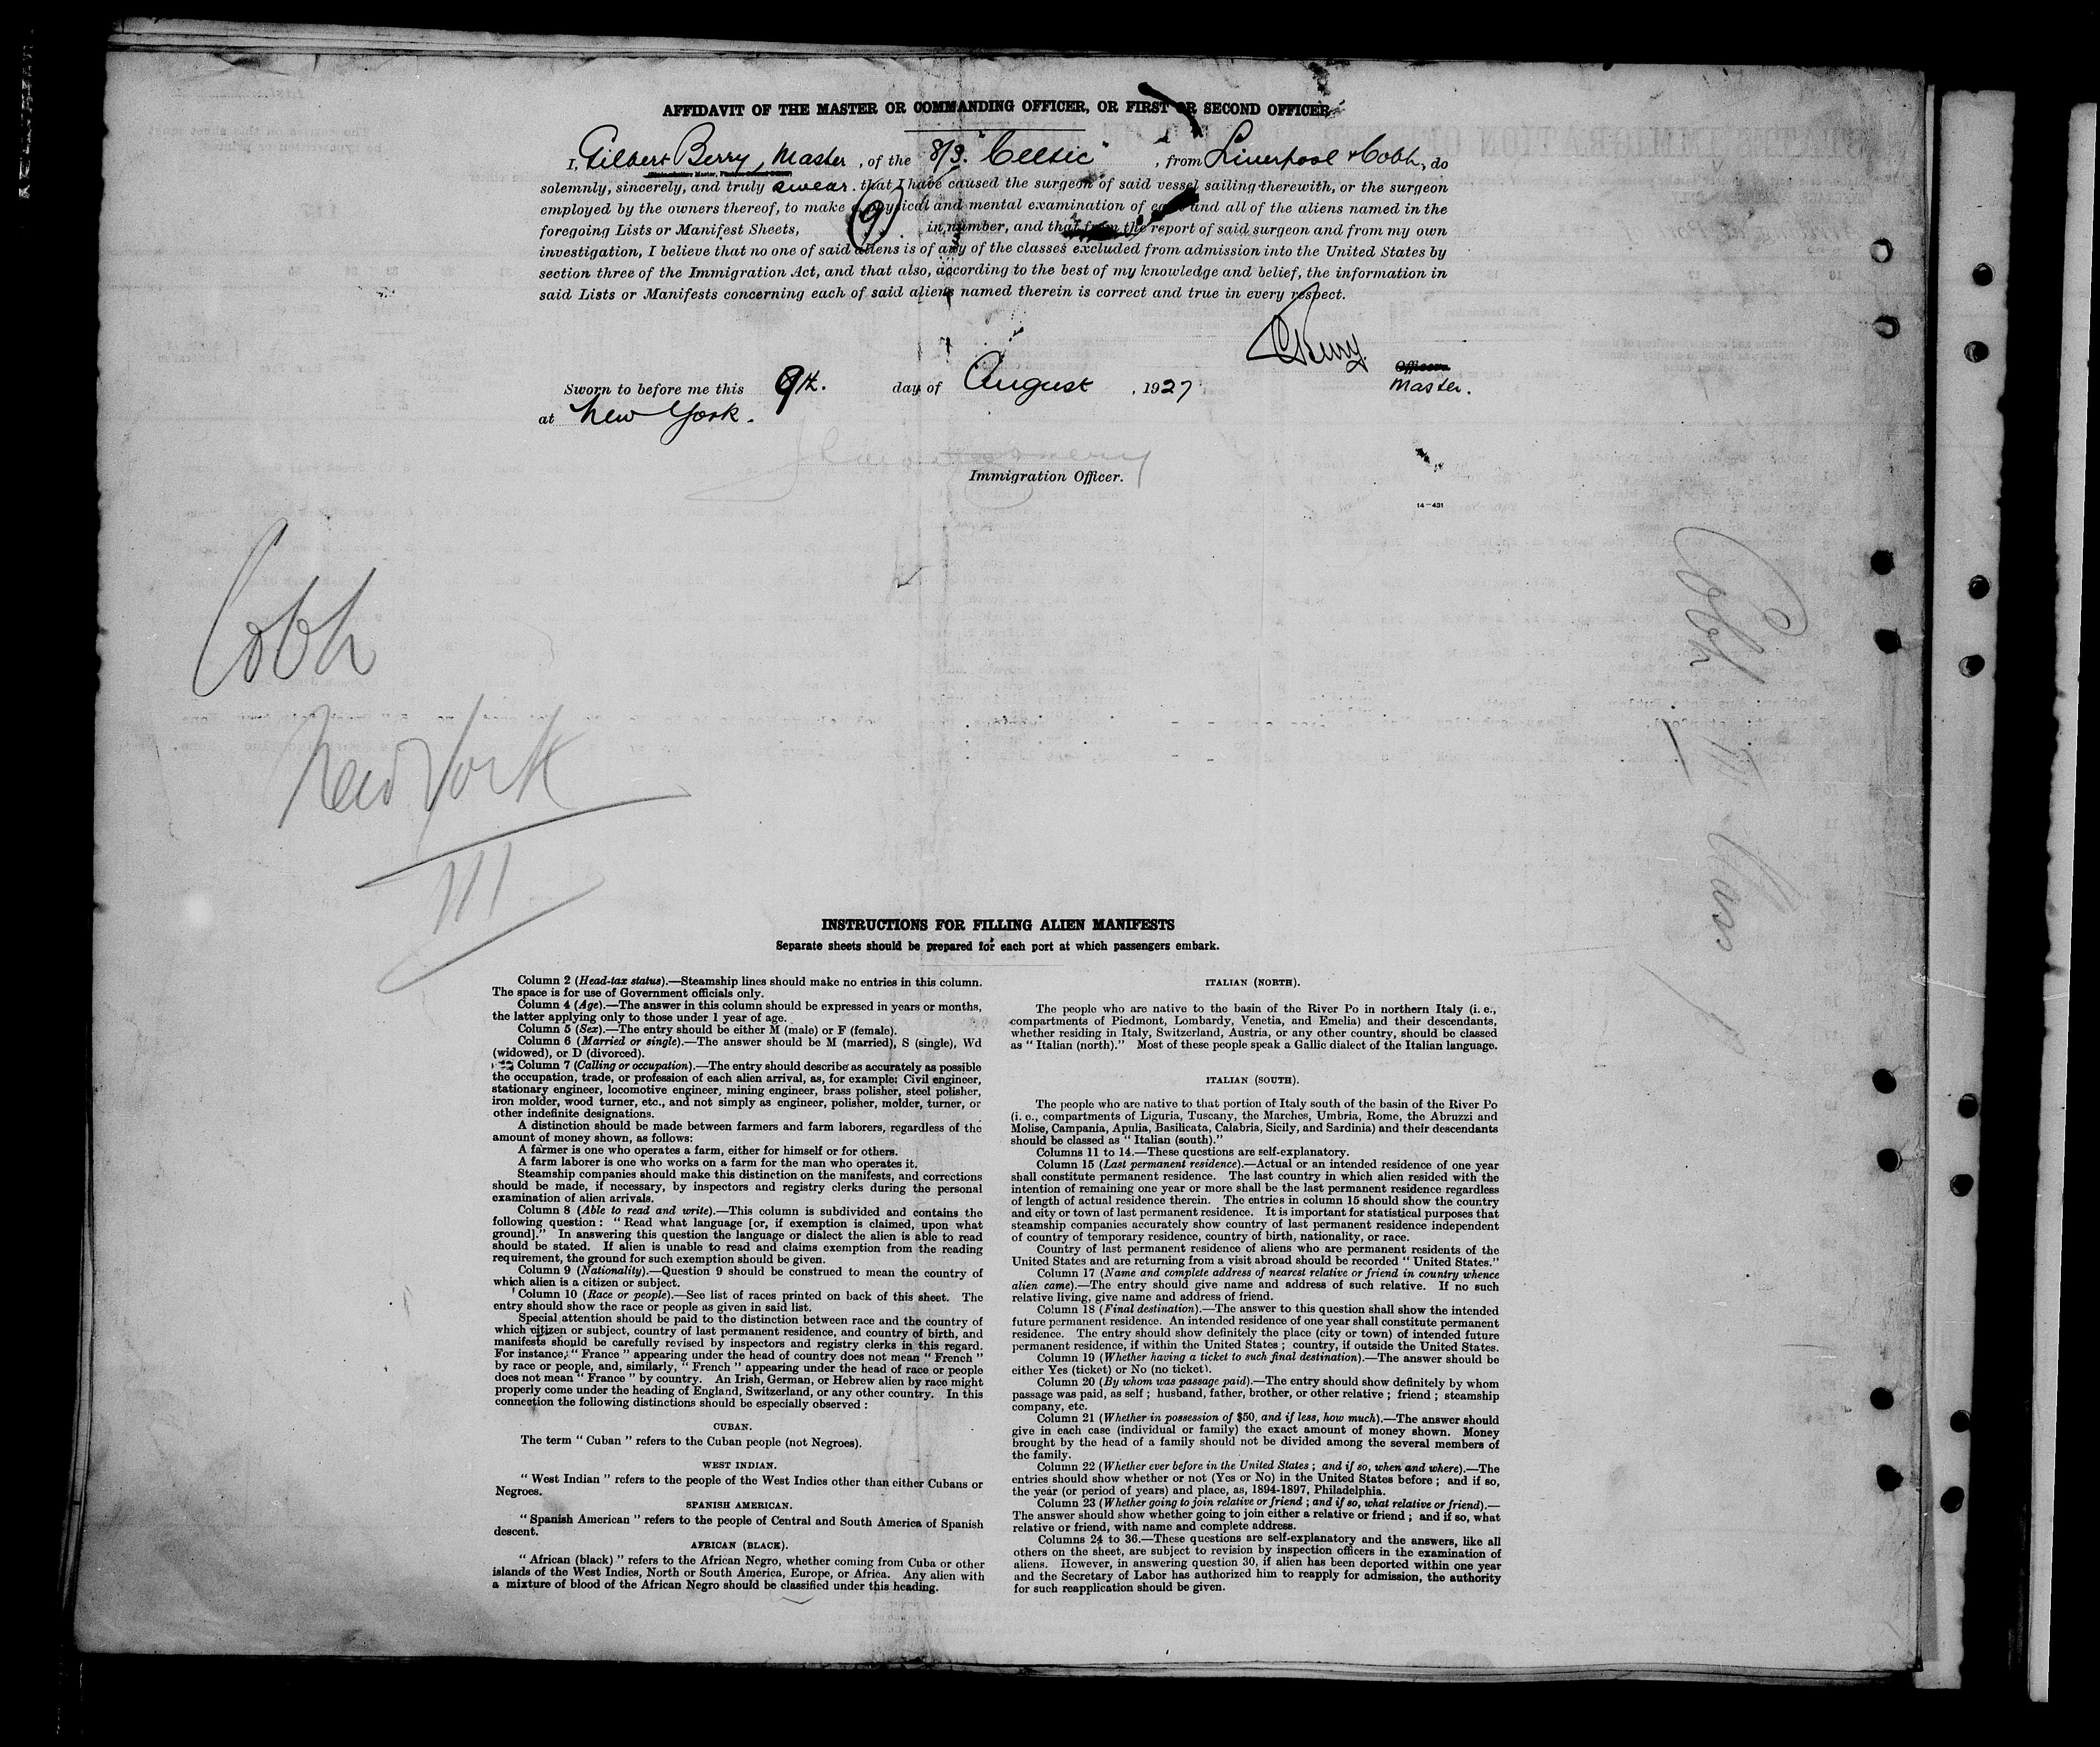 AFFIDAVIT OF THE MASTER OR COMMANDING OFFICER, OR FIRST OR SECOND OFFICER
I, Gilbert Berry, Master, of the S/S. "Celtic", from Liverpool & Cobh, do
solemnly, sincerely, and truly swear that I have caused the surgeon of said vessel sailing therewith, or the surgeon
employed by the owners thereof, to make a physical and mental examination of each and all of the aliens named in the
foregoing Lists or Manifest Sheets, (9) in number, and that from the report of said surgeon and from my own
investigation, I believe that no one of said aliens is of any of the classes excluded from admission into the United States by
section three of the Immigration Act, and that also, according to the best of my knowledge and belief, the information in
said Lists or Manifests concerning each of said aliens named therein is correct and true in every respect.
GBerry.
Officer.
Master.
Sworn to before me this 9th. day of August, 1927
at New York.
Immigration Officer.
14-431
Cobh
New York
III
Cobh
INSTRUCTIONS FOR FILLING ALIEN MANIFESTS
Separate sheets should be prepared for each port at which passengers embark.
Column 2 (Head-tax status).—Steamship lines should make no entries in this column.
The space is for use of Government officials only.
Column 4 (Age).—The answer in this column should be expressed in years or months,
the latter applying only to those under 1 year of age.
Column 5 (Sex).—The entry should be either M (male) or F (female).
Column 6 (Married or single).—The answer should be M (married), S (single), Wd
(widowed), or D (divorced).
Column 7 (Calling or occupation).—The entry should describe as accurately as possible
the occupation, trade, or profession of each alien arrival, as, for example: Civil engineer,
stationary engineer, locomotive engineer, mining engineer, brass polisher, steel polisher,
iron molder, wood turner, etc., and not simply as engineer, polisher, molder, turner, or
other indefinite designations.
A distinction should be made between farmers and farm laborers, regardless of the
amount of money shown, as follows:
A farmer is one who operates a farm, either for himself or for others.
A farm laborer is one who works on a farm for the man who operates it.
Steamship companies should make this distinction on the manifests, and corrections
should be made, if necessary, by inspectors and registry clerks during the personal
examination of alien arrivals.
Column 8 (Able to read and write).—This column is subdivided and contains the
following question: "Read what language [or, if exemption is claimed, upon what
ground]." In answering this question the language or dialect the alien is able to read
should be stated. If alien is unable to read and claims exemption from the reading
requirement, the ground for such exemption should be given.
Column 9 (Nationality).—Question 9 should be construed to mean the country of
which alien is a citizen or subject.
Column 10 (Race or people).—See list of races printed on back of this sheet. The
entry should show the race or people as given in said list.
Special attention should be paid to the distinction between race and the country of
which citizen or subject, country of last permanent residence, and country of birth, and
manifests should be carefully revised by inspectors and registry clerks in this regard.
For instance, "France" appearing under the head of country does not mean "French"
by race or people, and, similarly, "French" appearing under the head of race or people
does not mean "France" by country. An Irish, German, or Hebrew alien by race might
properly come under the heading of England, Switzerland, or any other country. In this
connection the following distinctions should be especially observed:
CUBAN.
The term "Cuban" refers to the Cuban people (not Negroes).
WEST INDIAN.
"West Indian" refers to the people of the West Indies other than either Cubans or
Negroes.
SPANISH AMERICAN.
"Spanish American" refers to the people of Central and South America of Spanish
descent.
AFRICAN (BLACK).
"African (black)" refers to the African Negro, whether coming from Cuba or other
islands of the West Indies, North or South America, Europe, or Africa. Any alien with
a mixture of blood of the African Negro should be classified under this heading.
ITALIAN (NORTH).
The people who are native to the basin of the River Po in northern Italy (i. e.,
compartments of Piedmont, Lombardy, Venetia, and Emelia) and their descendants,
whether residing in Italy, Switzerland, Austria, or any other country, should be classed
as "Italian (north)." Most of these people speak a Gallic dialect of the Italian language.
ITALIAN (SOUTH).
The people who are native to that portion of Italy south of the basin of the River Po
(i. e., compartments of Liguria, Tuscany, the Marches, Umbria, Rome, the Abruzzi and
Molise, Campania, Apulia, Basilicata, Calabria, Sicily, and Sardinia) and their descendants
should be classed as "Italian (south)."
Columns 11 to 14.—These questions are self-explanatory.
Column 15 (Last permanent residence).—Actual or an intended residence of one year
shall constitute permanent residence. The last country in which alien resided with the
intention of remaining one year or more shall be the last permanent residence regardless
of length of actual residence therein. The entries in column 15 should show the country
and city or town of last permanent residence. It is important for statistical purposes that
steamship companies accurately show country of last permanent residence independent
of country of temporary residence, country of birth, nationality, or race.
Country of last permanent residence of aliens who are permanent residents of the
United States and are returning from a visit abroad should be recorded "United States."
Column 17 (Name and complete address of nearest relative or friend in country whence
alien came).—The entry should give name and address of such relative. If no such
relative living, give name and address of friend.
Column 18 (Final destination).—The answer to this question shall show the intended
future permanent residence. An intended residence of one year shall constitute permanent
residence. The entry should show definitely the place (city or town) of intended future
permanent residence, if within the United States; country, if outside the United States.
Column 19 (Whether having a ticket to such final destination).—The answer should be
either Yes (ticket) or No (no ticket).
Column 20 (By whom was passage paid).—The entry should show definitely by whom
passage was paid, as self; husband, father, brother, or other relative; friend; steamship
company, etc.
Column 21 (Whether in possession of $50, and if less, how much).—The answer should
give in each case (individual or family) the exact amount of money shown. Money
brought by the head of a family should not be divided among the several members of
the family.
Column 22 (Whether ever before in the United States; and if so, when and where).—The
entries should show whether or not (Yes or No) in the United States before; and if so,
the year (or period of years) and place, as, 1894-1897, Philadelphia.
Column 23 (Whether going to join relative or friend; and if so, what relative or friend).—
The answer should show whether going to join either a relative or friend; and if so, what
relative or friend, with name and complete address.
Columns 24 to 36.—These questions are self-explanatory and the answers, like all
others on the sheet, are subject to revision by inspection officers in the examination of
aliens. However, in answering question 30, if alien has been deported within one year
and the Secretary of Labor has authorized him to reapply for admission, the authority
for such reapplication should be given.